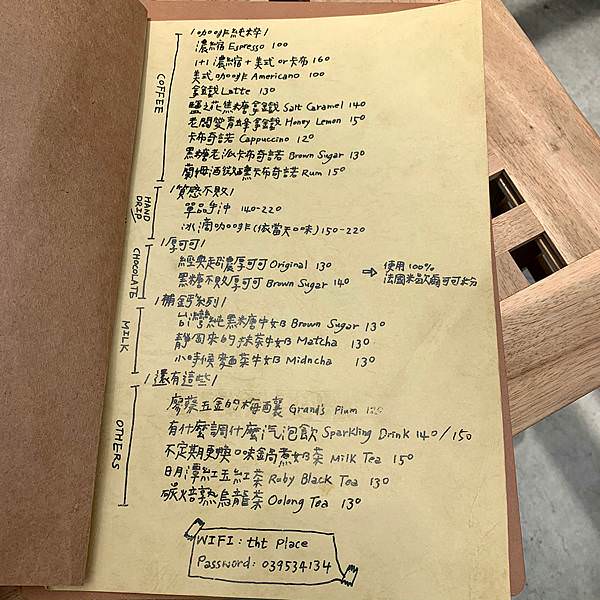 COFFEE
/咖啡純粹/
濃縮 Espresso 100
1+1 濃縮+美式 or 卡布 160
美式咖啡 Americano 100
拿鐵 Latte 130
鹽之花焦糖拿鐵 Salt Caramel 140
老闆變青蜂拿鐵 Honey Lemon 150
卡布奇諾 Cappuccino 120
黑糖老派卡布奇諾 Brown Sugar 130
蘭姆酒微醺卡布奇諾 Rum 150
HAND DRIP
/質感不敗/
單品手沖 140-220
冰滴咖啡(依當天口味) 150-220
CHOCOLATE
/厚可可/
經典超濃厚可可 Original 130
黑糖不敗厚可可 Brown Sugar 140
→ 使用100%
法國米歇爾可可成分
MILK
/補鈣系列/
台灣純黑糖牛奶 Brown Sugar 130
靜岡來的抹茶牛奶 Matcha 130
小時候麵茶牛奶 Midncha 130
OTHERS
/還有這些/
廖蔡五金的梅釀 Grand's Plum
有什麼調什麼汽泡飲 Sparkling Drink 140/150
不定期更換口味鍋煮奶茶 Milk Tea 150
日月潭紅玉紅茶 Ruby Black Tea 130
碳焙熟烏龍茶 Oolong Tea 130
WIFI: tht Place
Password: 039534134